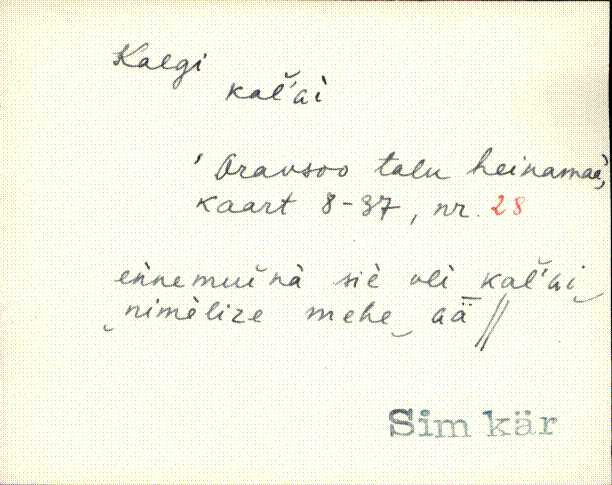 Kalgi
kal̆'ài
' Oravsoo talu heinamaa,
kaart 8-37, nr. 28
ènnemuĭnà siè oli kal̆'ài
nimèlize mehe aā̈ //
Sim kär